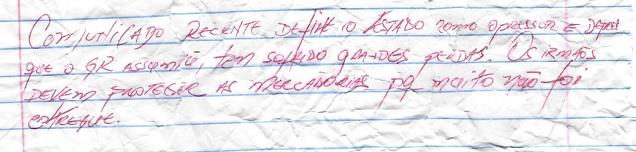 Comunicado RECENTE DEFINE o ESTADO como opressor E DEPOIS
que o GR assumiu, tem sofrido GRANDES PERDAS. Os irmãos
DEVEM PROTEGER AS MERCADORIAS pq muito não foi
ENTREGUE.